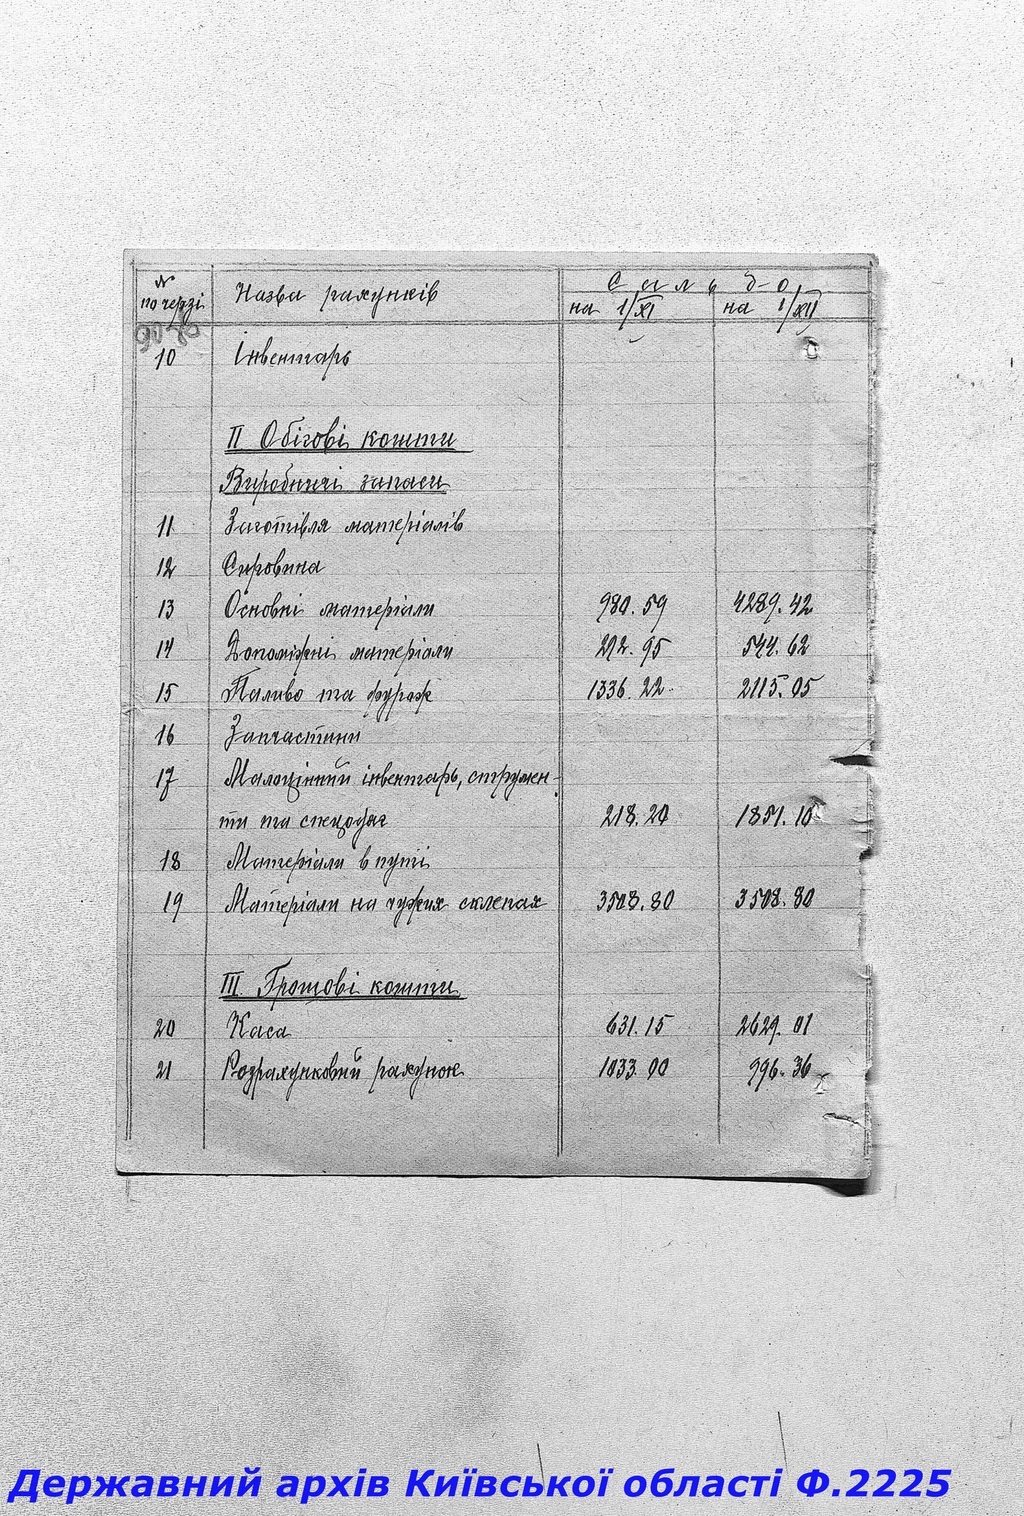 № по черзі Назва рахунків Сальдо
на 1/XI на 1/XII
10 Інвентарь
II Обігові кошти
Виробничі запаси
11 Заготівля матеріалів
12 Сировина
13 Основні матеріали 980.59 4289.42
14 Допоміжні матеріали 272.95 544.62
15 Паливо та фураж 1336.22 2115.05
16 Запчастини
17 Малоцінний інвентарь, струмен-
ти та спецодяг 218.20 1851.10
18 Матеріали в путі
19 Матеріали на чужих склепах 3508.80 3508.80
III Грошові кошти
20 Каса 631.15 2629.01
21 Розрахунковий рахунок 1033.00 996.36
Державний архів Київської області Ф.2225